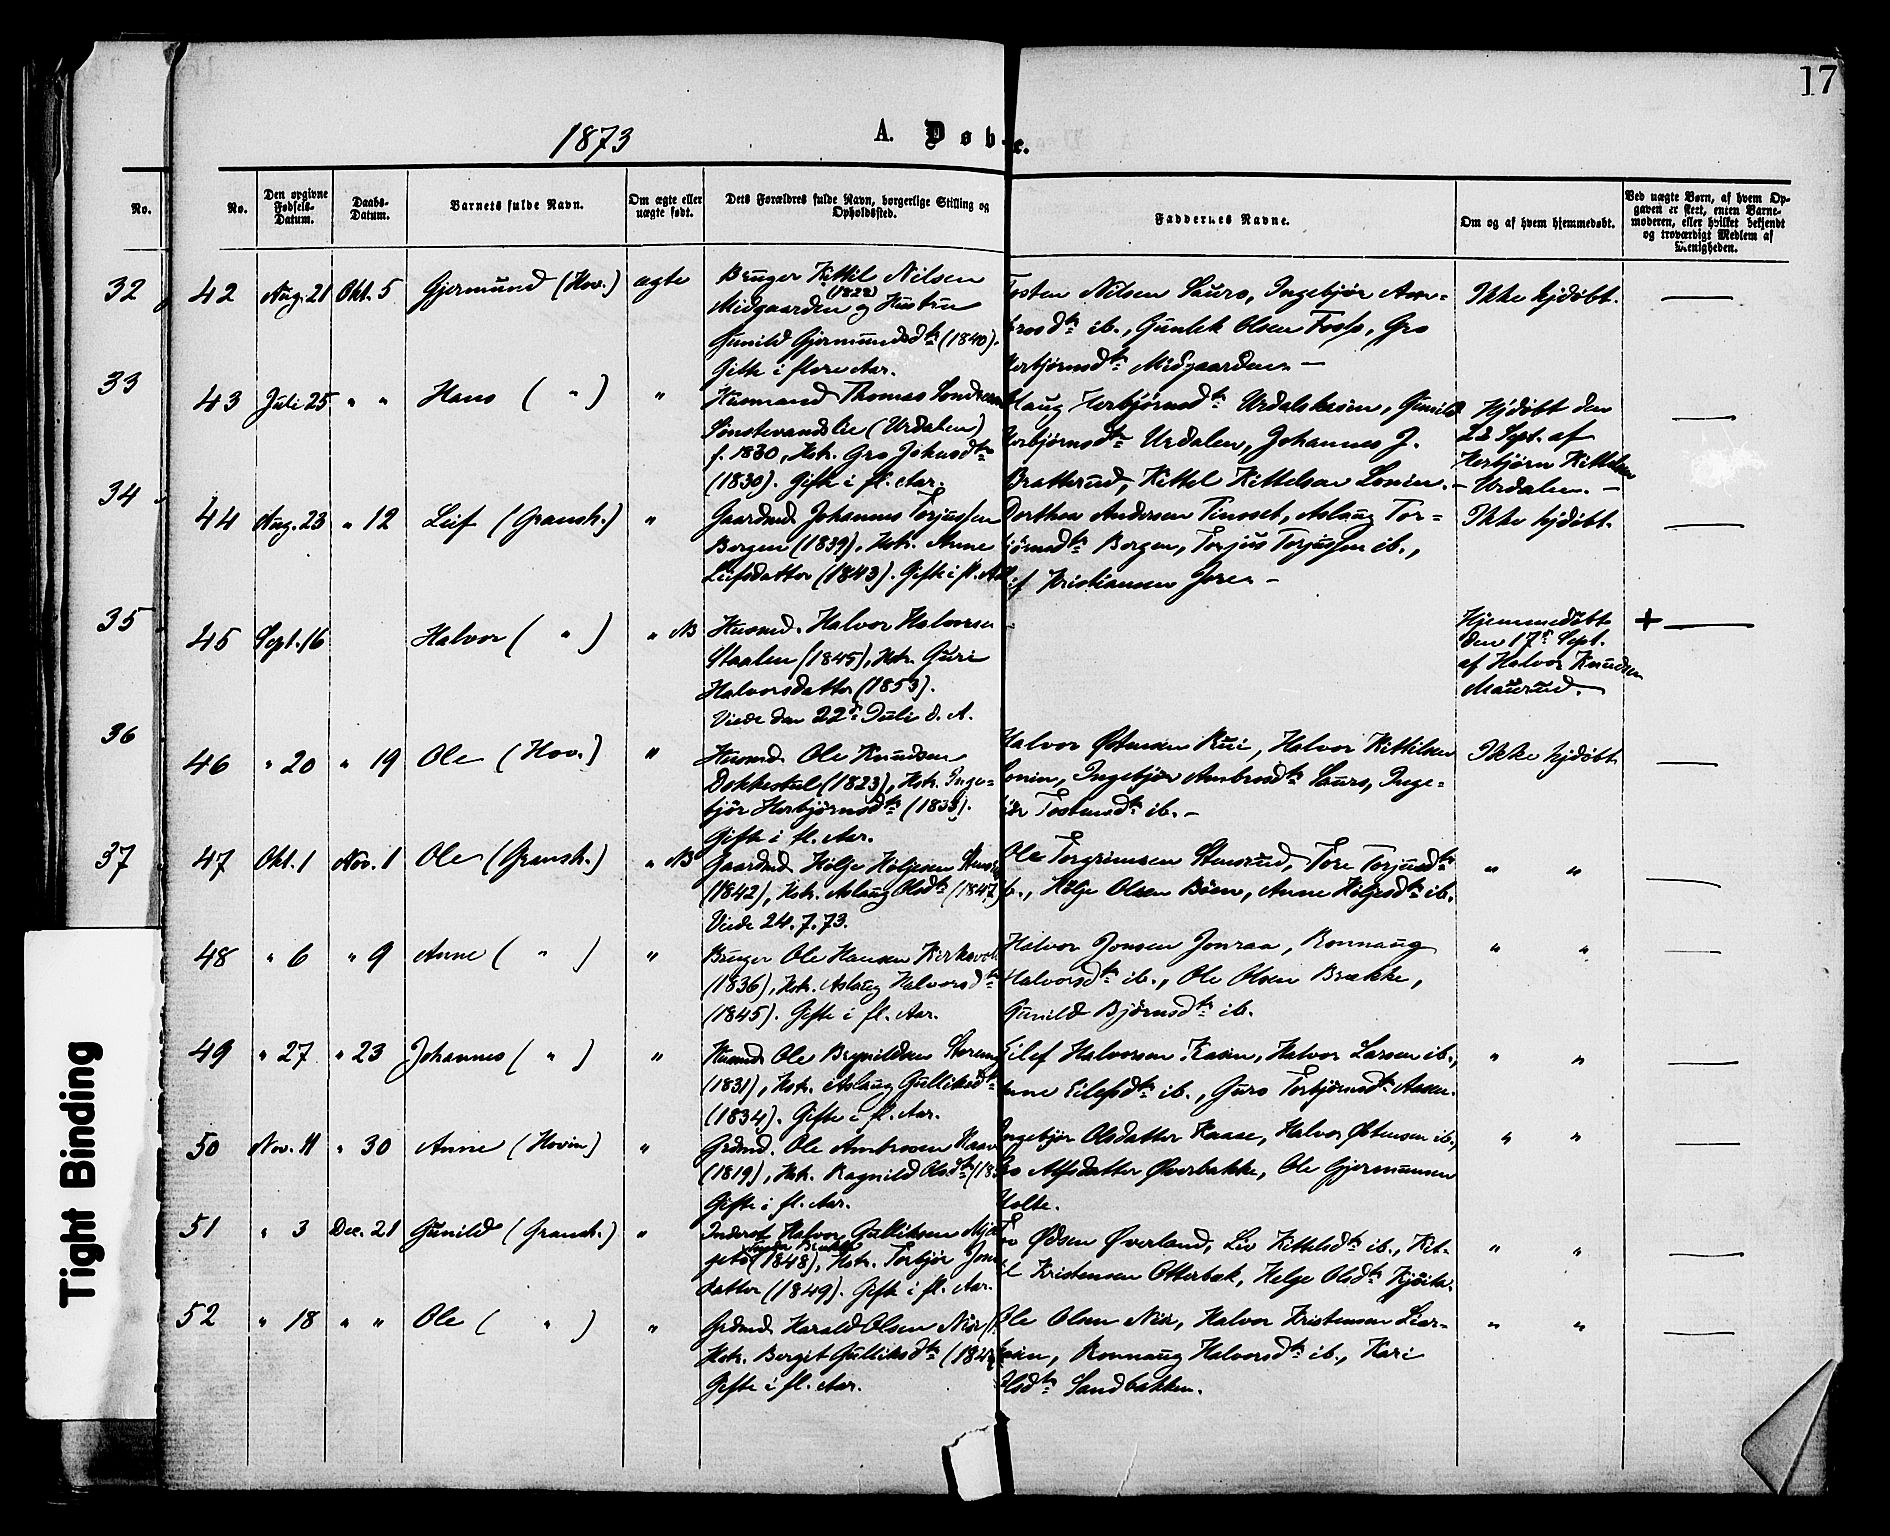 17
1873
A. Døb
e.
No.
No.
Den opgivne Fødsels-Datum.
Daabs-Datum.
Barnets fulde Navn.
Om ægte eller uægte født.
Dets Forældres fulde Navn, borgerlige Stilling og Opholdssted.
Faddernes Navne.
Om og af hvem hjemmedøbt.
Ved uægte Børn, af hvem Opgaven er skeet, enten Barnemoderen, eller hvilket bekjendt og troværdigt Medlem af Menigheden.
32
33
34
35
36
37
42 Aug. 21 Okt. 5 Gjermund (Hov.) ægte
Bruger Kittil Nilsen
Midgaarden (1822) og Hustru
Gunild Gjermundsdtr (1840).
Gifte i flere Aar.
Tosten Nilsen Sauro, Ingebjør Am-
brosdtr ib., Gunlek Olsen Foss, Gro
Herbjørnsdtr Midgaarden –
Ikke hjdøbt.
43 Juli 25 " " Hans ( " ) "
Husmand Thomas
Sønstevandslie (Urdalen)
f. 1830, Hstr. Gro Johnsdtr
(1830). Gifte i fl. Aar.
Aslaug Herbjørnsdtr Urdalskaasen, Gunild
Herbjørnsdtr Urdalen, Johannes J.
Bratterud, Kittel Kittelsen Lonin. –
Hjdøbt den
22 Sept. af
Herbjørn Kittelsen
Urdalen. –
44 Aug. 23 " 12 Leif (Gransh.) "
Gaardmd. Johannes Torjussen
Borgen (1839), Hstr. Anne
Leifsdatter (1843). Gifte i fl. Aar
Dorthea Andersen Tinoset, Aslaug Tor-
bjørnsdtr Borgen, Torjus Torjussen ib.,
Leif Kristiansen Jore –
Ikke hjdøbt.
45 Sept. 16 Halvor ( " ) " NB
Husmd. Halvor Halvorsen
Staalen (1845), Hstr. Guri
Halvorsdatter (1853).
Viede den 22de Juli d. A.
Hjemmedøbt
den 17de Sept.
af Halvor Knudsen
Maurud.
+
46 " 20 " 19 Ole (Hov.) "
Husmd. Ole Knudsen
Dokkestul (1823), Hstr. Inge-
bjør Herbjørnsdtr (1833).
Gifte i fl. Aar.
Halvor Østensen Rui, Halvor Kittilsen
Lonin, Ingebjør Ambrosdtr Sauro, Inge-
bjør Tostensdtr ib. –
Ikke hjdøbt
47 Okt. 1 Nov. 1 Ole (Gransh.) " NB
Gaardmd. Helge Helgesen
(1842), Hstr. Aslaug Olsdtr (1847)
Viede 24.7.73.
Ole Torgrimsen Stensrud, Tore Torjusdtr
ib., Helge Olsen Bøen, Anne Helgesdtr ib.
" "
48 " 6 " 9 Anne ( " ) "
Bruger Ole Hansen Kirkevold
(1836), Hstr. Aslaug Halvorsdtr
(1845). Gifte i fl. Aar.
Halvor Jonsen Jonraa, Ronnaug
Halvorsdtr ib., Ole Olsen Brække,
Gunild Bjørnsdtr ib.
" "
49 " 27 " 23 Johannes ( " ) "
Husmd. Ole Brynildsen
(1831), Hstr. Aslaug Gulliksdtr
(1834). Gifte i fl. Aar.
Eilef Halvorsen Kasin, Halvor Larsen ib.,
Anne Eilefsdtr ib., Guro Torbjørnsdtr Aasen.
" "
50 Nov. 11 " 30 Anne (Hovin) "
Grdmd. Ole Ambrosen Kaase
(1819), Hstr. Ragnild Olsdtr
Gifte i fl. Aar.
Ingebjør Olsdatter Kaase, Halvor Østensen ib.,
Alfsdatter Øverbakke, Ole Gjermunsen
Holte.
" "
51 " 3 Dec. 21 Gunild (Gransh.) "
Inderst Halvor Gulliksen
(1848), Hstr. Torbjør Jons-
datter (1849). Gifte i fl. Aar.
Ødsen Øverland, Liv Kittelsdtr ib., Kit-
tel Kristensen Otterbæk, Helge Olsdtr
" "
52 " 18 " " Ole ( " ) "
Grdmd. Harald Olsen
Hstr. Bergit Gulliksdtr
Gifte i fl. Aar.
Ole Olsen Nir, Halvor Kristensen
Ronnaug Halvorsdtr ib., Kari
Olsdtr Sandbakken.
" "
Tight Binding